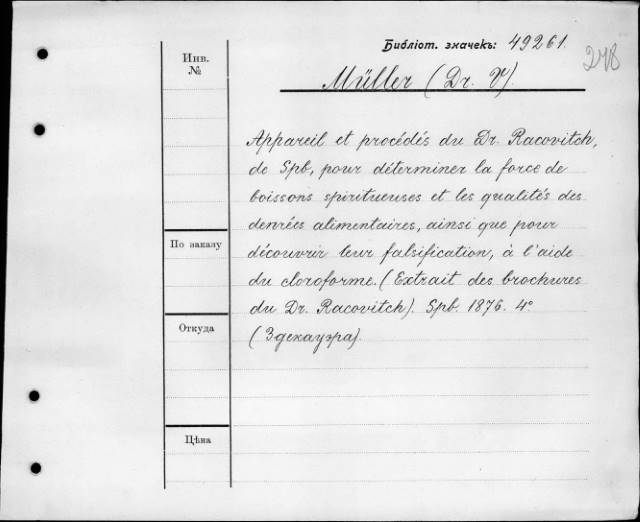 Библіот. значекъ: 49261.
248
Инв.
№
Müller (Dr. V).
Appareil et procédés du Dr. Racovitch,
de Spb, pour déterminer la force de
boissons spiritueuses et les qualités des
denrées alimentaires, ainsi que pour
По заказу
découvrir leur falsification, à l'aide
du cloroforme. (Extrait des brochures
du Dr. Racovitch). Spb. 1876. 4°
Откуда
(Здекауэра).
Цѣна